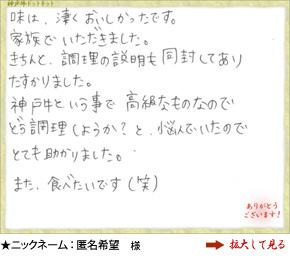 神戸牛ドットネット
味は、凄くおいしかったです。
家族でいただきました。
きちんと、調理の説明も同封してあり
たすかりました。
神戸牛という事で高級なものなので
どう調理しようか？と、悩んでいたので
とても助かりました。
また、食べたいです（笑）
ありがとう
ございます！
★ニックネーム：匿名希望 様
拡大して見る